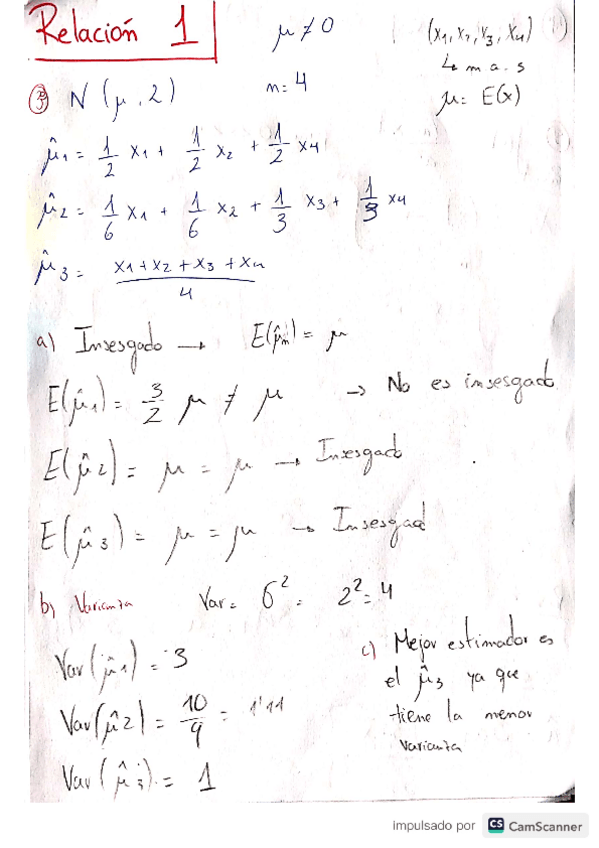 Relación 1
μ ≠ 0
(x1, x2, x3, x4)
↳ m.a.s
③ N(μ, 2)
n = 4
μ = E(x)
μ̂1 = 1/2 x1 + 1/2 x2 + 1/2 x4
μ̂2 = 1/6 x1 + 1/6 x2 + 1/3 x3 + 1/3 x4
μ̂3 = (x1 + x2 + x3 + x4)/4
a) Insesgado → E(μ̂n) = μ
E(μ̂1) = 3/2 μ ≠ μ → No es insesgado
E(μ̂2) = μ = μ → Insesgado
E(μ̂3) = μ = μ → Insesgad
b) Varianza Var = σ² = 2² = 4
Var(μ̂1) = 3
Var(μ̂2) = 10/9 = 1'11
Var(μ̂3) = 1
c) Mejor estimador es
el μ̂3 ya que
tiene la menor
varianza
impulsado por CS CamScanner